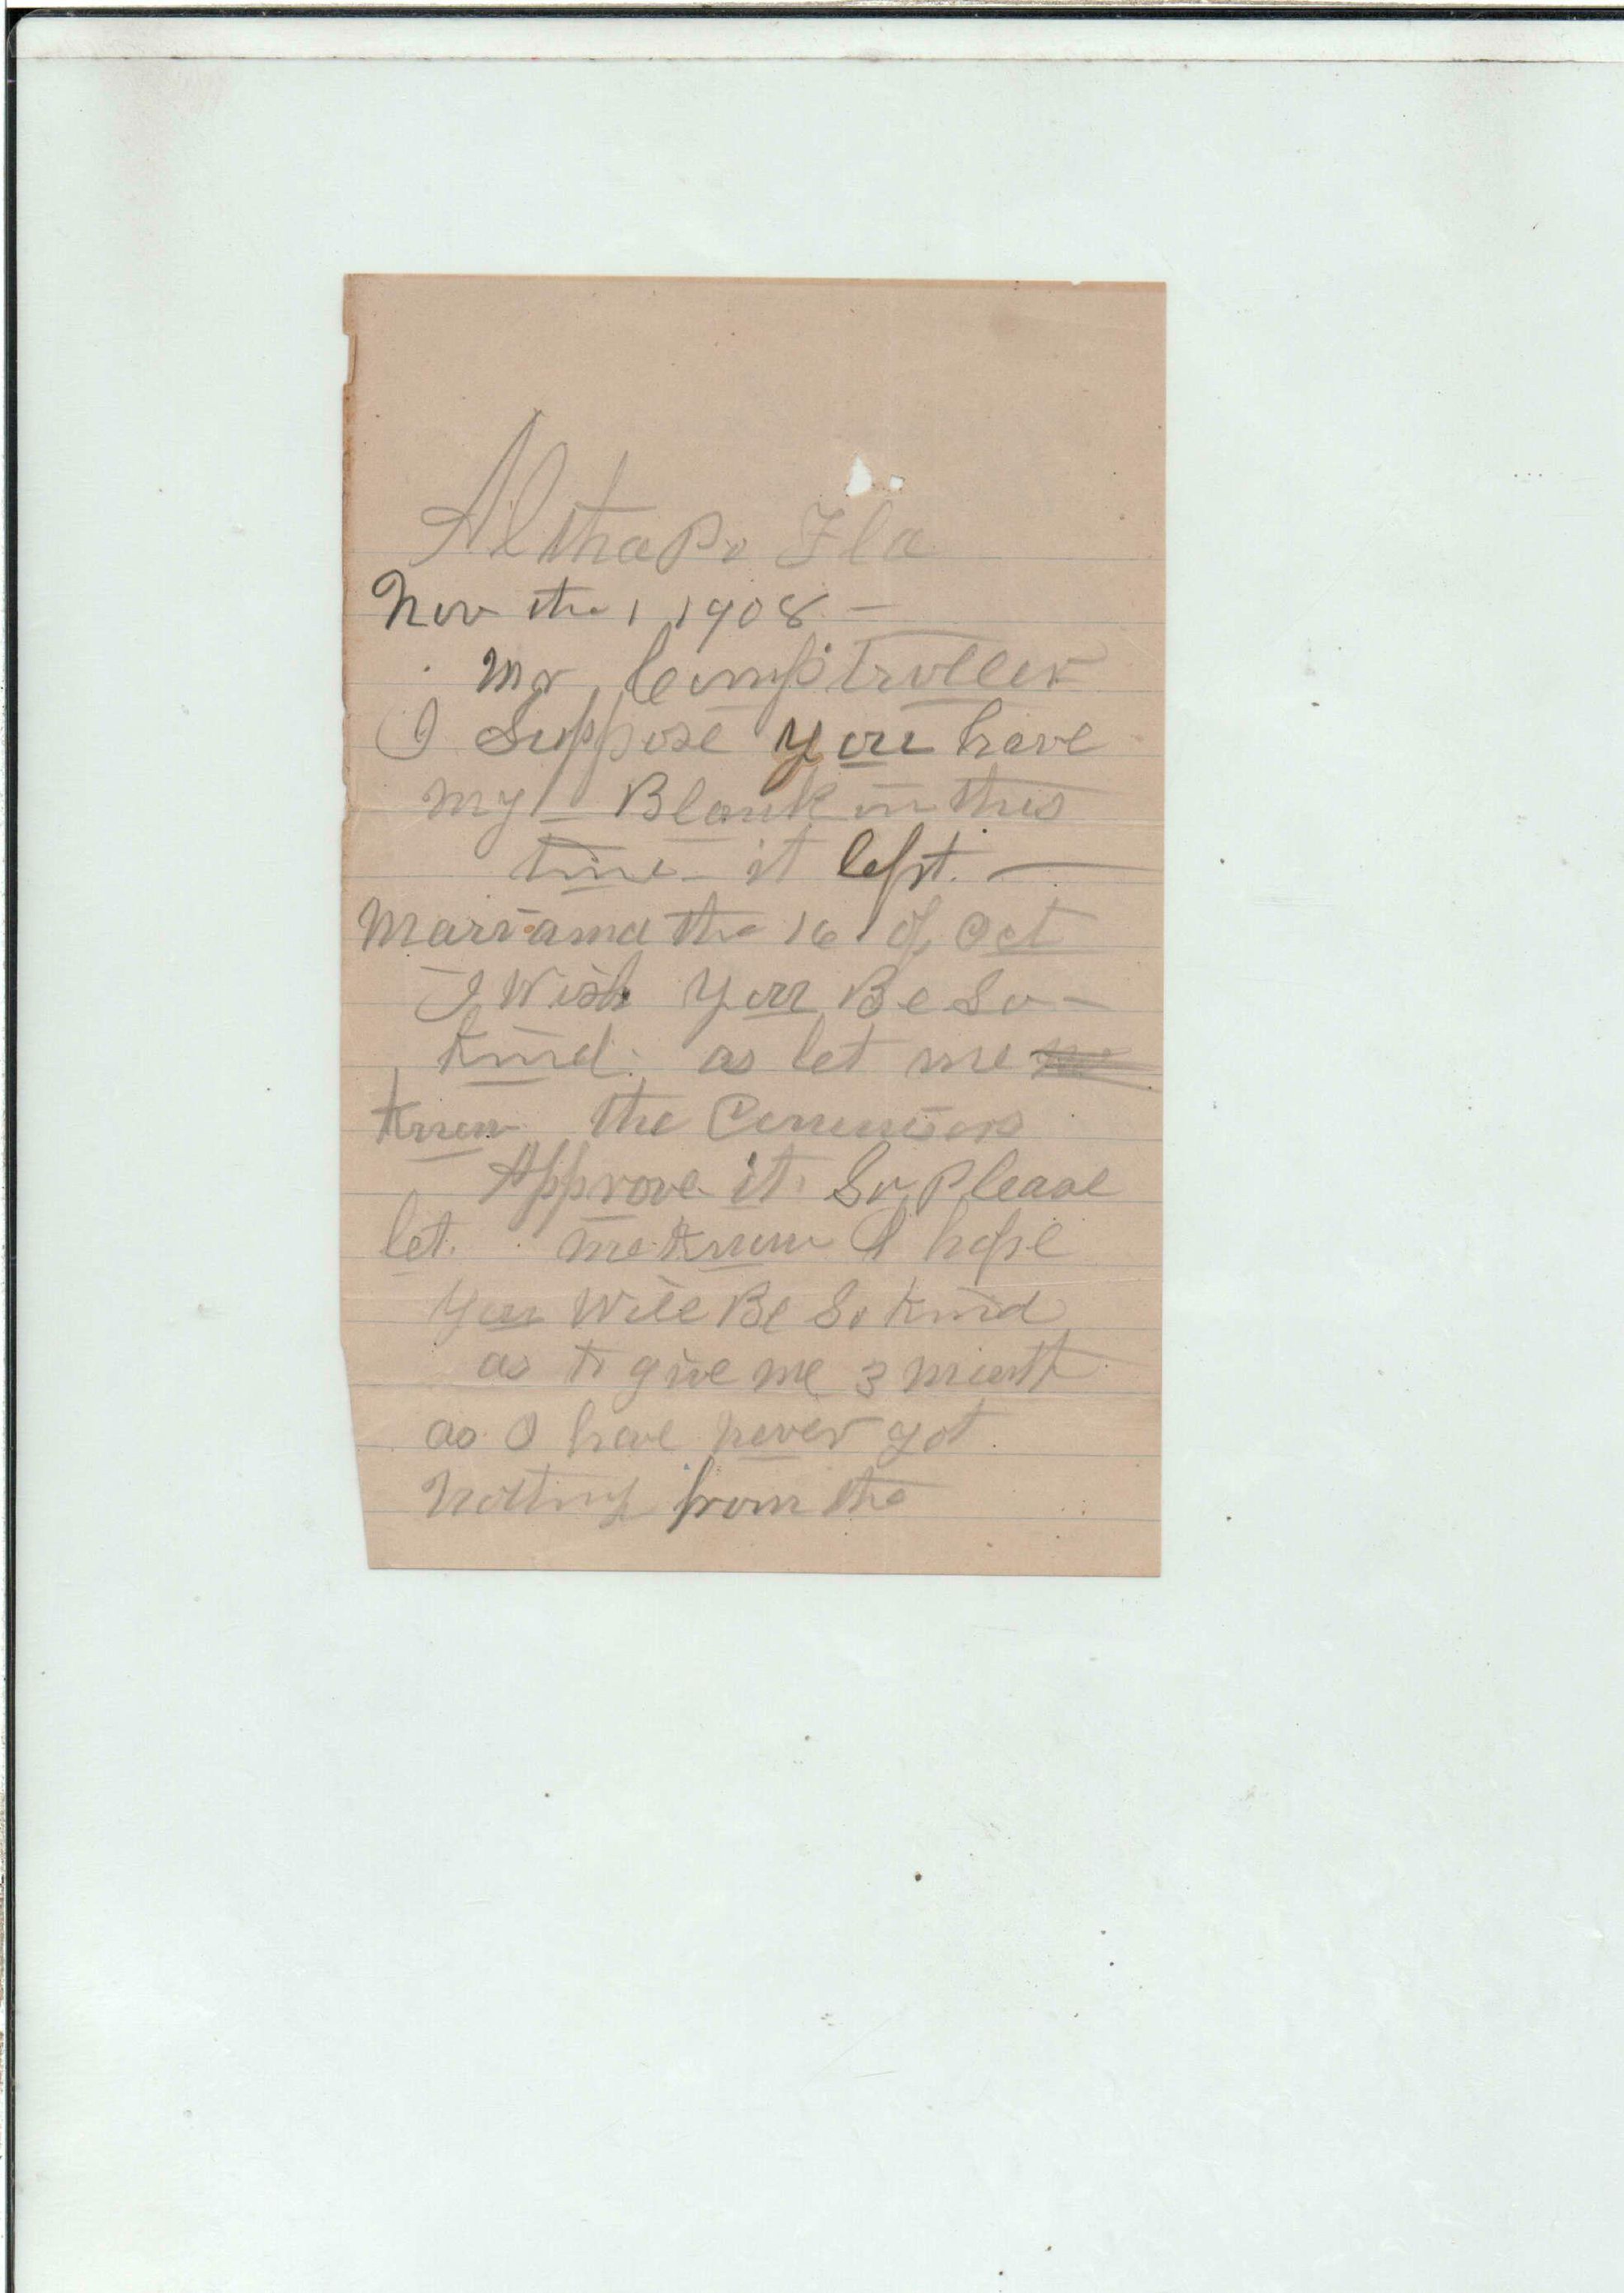 Altha Po Fla
Nov the 1 1908 -
Mr Comptroller
I Suppose you have
my - Blank in this
time - it left. -
Mariama the 16 of Oct
I Wish you Be So -
Kind. as let me
Know the
Approve it. So Please
let. me Know I hope
you Will Be So Kind
as to give me 3 month
as I have never got
nothing from the